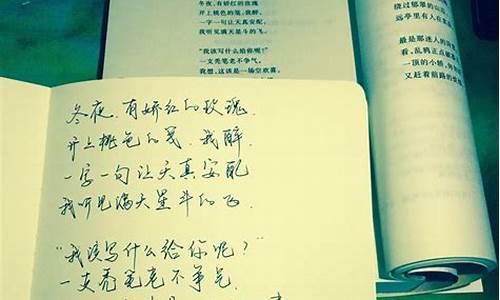 冬夜,有娇红的玫瑰
开上桃色的笺,我醉,
一字一句让天真安配
我听见满天星斗的飞。
“我该写什么给你呢?”
一支秃笔老不争气,
我想,这该是一场空欢喜。
绕过郁翠的山
远亭里有人在
最是那迷人的
看,乱鸦正点
一顶的小轿,
又赶着前路的
冬夜.有娇红的玫瑰.
开上桃色的笺.我醉.
一字一句让天真安配
我听见满天星斗的飞.
“我该写什么给你呢?”
一支秃笔老不争气.